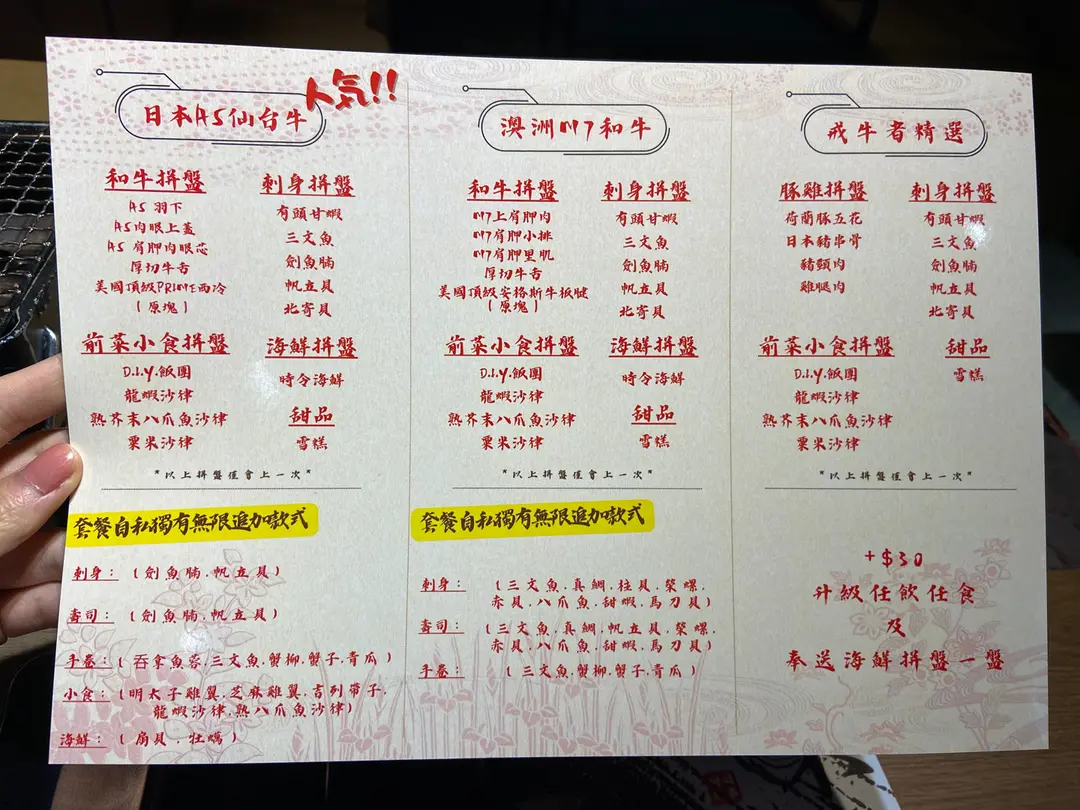 人気!!
日本A5仙台牛
和牛拼盤
A5 羽下
A5肉眼上蓋
A5 肩胛肉眼芯
厚切牛舌
美國頂級PRIME西冷
(原塊)
刺身拼盤
有頭甘蝦
三文魚
劍魚腩
帆立貝
北寄貝
前菜小食拼盤
D.I.Y.飯團
龍蝦沙律
熟芥末八爪魚沙律
粟米沙律
海鮮拼盤
時令海鮮
甜品
雪糕
*以上拼盤僅會上一次*
套餐自私獨有無限追加款式
刺身:(劍魚腩.帆立貝)
壽司:(劍魚腩.帆立貝)
手卷:(吞拿魚蓉.三文魚.蟹柳.蟹子.青瓜)
小食:(明太子雞翼.芝麻雞翼.吉列帶子.
龍蝦沙律.熟八爪魚沙律)
海鮮:(扇貝.牡蠣)
澳洲M7和牛
和牛拼盤
M7上肩胛肉
M7肩胛小排
M7肩胛里肌
厚切牛舌
美國頂級安格斯牛板腱
(原塊)
刺身拼盤
有頭甘蝦
三文魚
劍魚腩
帆立貝
北寄貝
前菜小食拼盤
D.I.Y.飯團
龍蝦沙律
熟芥末八爪魚沙律
粟米沙律
海鮮拼盤
時令海鮮
甜品
雪糕
*以上拼盤僅會上一次*
套餐自私獨有無限追加款式
刺身:(三文魚.真鯛.柱貝.榮螺.
赤貝.八爪魚.甜蝦.馬刀貝)
壽司:(三文魚.真鯛.帆立貝.榮螺.
赤貝.八爪魚.甜蝦.馬刀貝)
手卷:(三文魚.蟹柳.蟹子.青瓜)
戒牛者精選
豚雞拼盤
荷蘭豚五花
日本豬串骨
豬頸肉
雞腿肉
刺身拼盤
有頭甘蝦
三文魚
劍魚腩
帆立貝
北寄貝
前菜小食拼盤
D.I.Y.飯團
龍蝦沙律
熟芥末八爪魚沙律
粟米沙律
甜品
雪糕
*以上拼盤僅會上一次*
+$30
升級任飲任食
及
奉送海鮮拼盤一盤